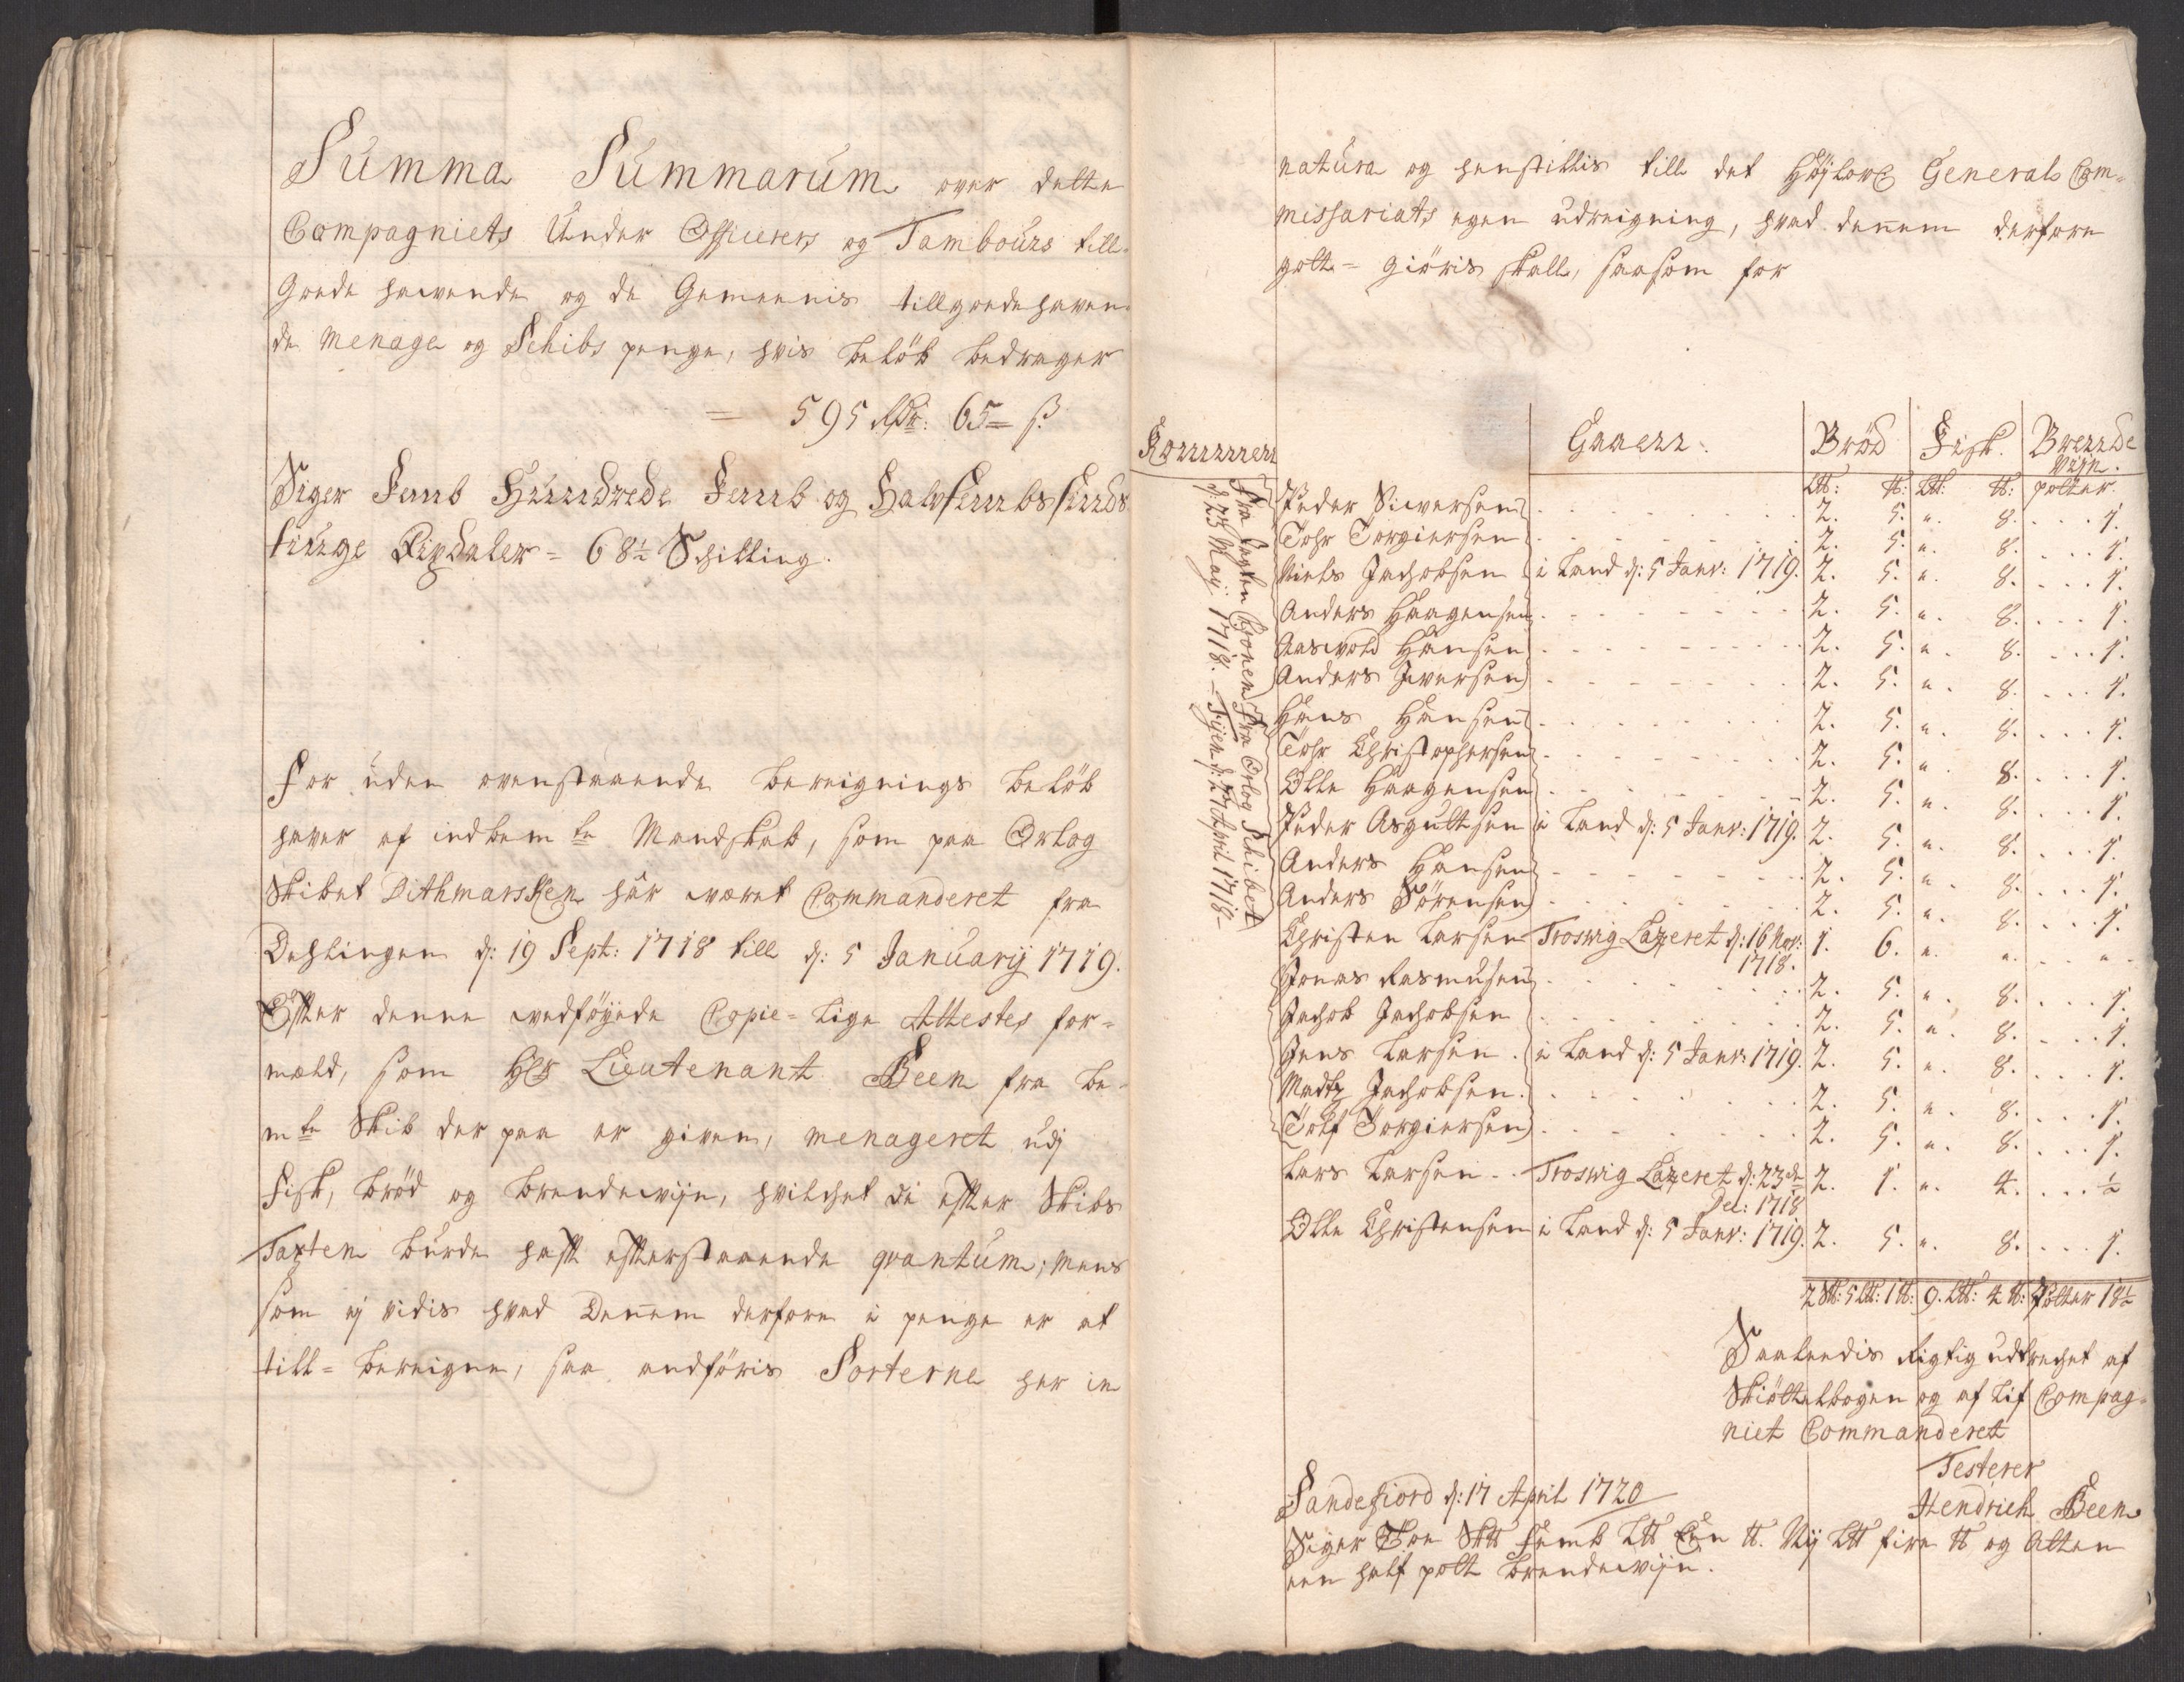 Summa Summarum over dette
Compagniets Under Officerers og Tambours till-
goede hawende og de Gemeenis tillgoedehaven-
de menage og Schibs penge, hvis beløb bedrager
= 595 Rdr: 65 = ß
Siger Femb Hundrede Femb og Halvfembsseinds
tiuge Rixdaler = 68½ Schilling.
For uden ovenstaaende bereignings beløb
haver af indbem te Mandskab, som paa Orlog
Skibet Dithmarsken hár været Commanderet fra
d: 19 Sept: 1718 till d: 5 Januarij 1719.
Efter denne vedföyede Copie = lige Attestes for-
mæld, som Hr Lieutenant Been fra be-
mte Skib der paa er given, menageret udj
Fisk, bröd og brendewijn, hvilchet de efter Skibs
Taxten burde hafft efterstaaende qvantum; mens
som ej vidis hvad Dennem derfore i penge er at
till = bereigne, saa andföris Sorterne her in
natura og henstillis till det Höylovl General Com-
missariats egen udreigning, hvad dennem derfore
gott = giöris skall, saasom for
Kommen Gaaen: Bröd Fisk. Brende
Viin.
Ltt: tt: Ltt: tt: potter.
Fra Jagten Cronen
d: 23 Maij 1718.
Fra Orlog Skibet
Fyen d: 27 April 1718
Peder Siwersen 2. 5. " . 8. . . . 1.
Tohr Torgiersen 2. 5. " . 8. . . . 1.
Niels Jachobsen i Land d: 5 Janv: 1719. 2. 5. " . 8. . . . 1.
Anders Haagensen 2. 5. " . 8. . . . 1.
Aaswold Hansen 2. 5. " . 8. . . . 1.
Anders Iversen 2. 5. " . 8. . . . 1.
Hans Hansen 2. 5. " . 8. . . . 1.
Tohr Christophersen 2. 5. " . 8. . . . 1.
Olle Haagensen 2. 5. " . 8. . . . 1.
Peder Asgultsen i Land d: 5 Janv: 1719. 2. 5. " . 8. . . . 1.
Anders Hansen 2. 5. " . 8. . . . 1.
Anders Sörensen 2. 5. " . 8. . . . 1.
Christen Larsen Troswig Lazeret d: 16 Nov: 1. 6. " . " . . . "
1718.
Jonas Rasmusen 2. 5. " . 8. . . . 1.
Jachob Jachobsen 2. 5. " . 8. . . . 1.
Jens Larsen . i Land d: 5 Janv: 1719. 2. 5. " . 8. . . . 1.
Madtz Jachobsen. 2. 5. " . 8. . . . 1.
Tolf Torgiersen 2. 5. " . 8. . . . 1.
Lars Larsen . . Troswig Lazeret d: 23de 2. 1. " . 4. . . . ½
Dec: 1718
Olle Christensen i Land d: 5 Janv: 1719. 2. 5. " . 8. . . . 1.
2 Stt: 5 Ltt: 1 tt: 9. Ltt: 4 tt: Potter 18½
Saaledis Rigtig udtrechet af
Skiöttelbogen og af Lif Compag-
niet Commanderet
Testerer
Hendrich Been
Sandefiord d: 17 April 1720
Siger Toe Stt Femb Ltt Een tt. Nij Ltt fire tt og Atten
een half pott brendewijn.